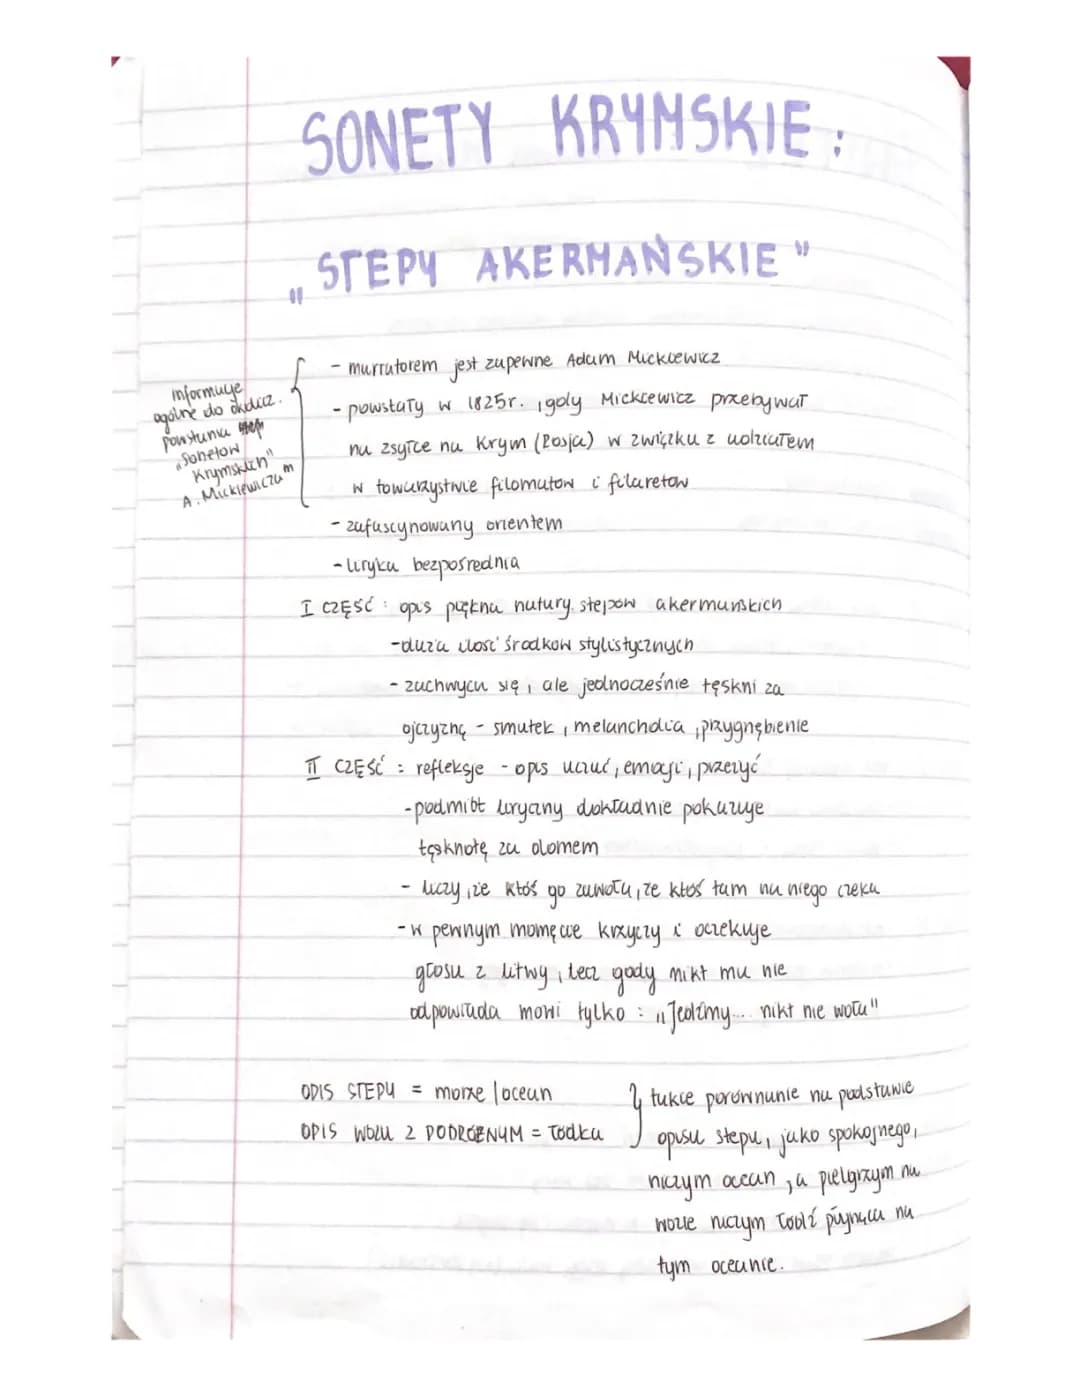 SONETY KRYMSKIE:
„STEPY AKERMAŃSKIE"
informuje
ogólne do okolicz.
powstania
„Sonetow
Krymskich"
A. Mickiewicza
- narratorem jest zapewne Adam Mickiewicz
- powstały w 1825r., gdy Mickiewicz przebywał
na zsyłce na Krym (Rosja) w związku z udziałem
w towarzystwie filomatow i filaretow
- zafascynowany orientem
- liryka bezpośrednia
I CZĘŚĆ: opis piękna natury, stepow akermańskich
- duża ilość środkow stylistycznych
- zachwyca się, ale jednocześnie tęskni za
ojczyzną - smutek, melancholia, przygnębienie
II CZĘŚĆ: refleksje - opis uczuć, emocji, przeżyć
- podmiot liryczny dokładnie pokazuje
tęsknotę za domem
- liczy, że ktoś go zawoła, że ktoś tam na niego czeka
- w pewnym momęcie krzyczy i oczekuje
głosu z litwy, lecz gdy nikt mu nie
odpowiada mowi tylko: „Jedźmy... nikt nie woła"
OPIS STEPU = morze/ocean
OPIS WOZU Z PODRÓŻNYM = łódka
takie porównanie na podstawie
opisu stepu, jako spokojnego,
niczym ocean, a pielgrzym na
wozie niczym łodź płynąca na
tym oceanie.